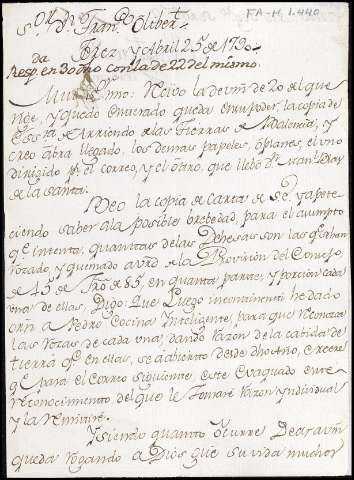 FA-H.1.440
S.or D.n Fran.co Olibert
Baez y Abril 25 de 1790
Resp.da en 30 dho con la de 22 del mismo.
Muy S.r mio: Recivo la de vm de 20 del que
rige, y quedo enterado queda en su poder, la copia de
Ess.ra de Arriendo de las Tierras de Palencia, y
creo abra llegado los demas papeles, ò planes, el uno
dirigido p.r el correo, y el òtro, que llebò D.n Juan Diaz
de la Santa.
Veo la copia de Carta de S.E. y apete
ciendo saber àla posible brebedad, para el asumpto
q.e intenta, quantas de las Dehesas son las q.e se han
rotado, y quemado en v.rd de la Provision del Consejo,
de 45 de Tro de 85, en quanta parte, y porcion cada
una de ellas, Digo Que Luego incontinenti he dado
orn à Pedro Cocina Inteligente, para que reconozca
las rotas de cada una, dando razon de la cabida de
tierra q.e en ellas, se à abierto desde dho Año, creere
q.e para el Correo siguiente, este evaquado este
reconocimiento del que le tomarè razon yndividual
y la remitirè.
Y siendo quanto òcurre Decir à vm
queda rogando à Dios que su vida muchos